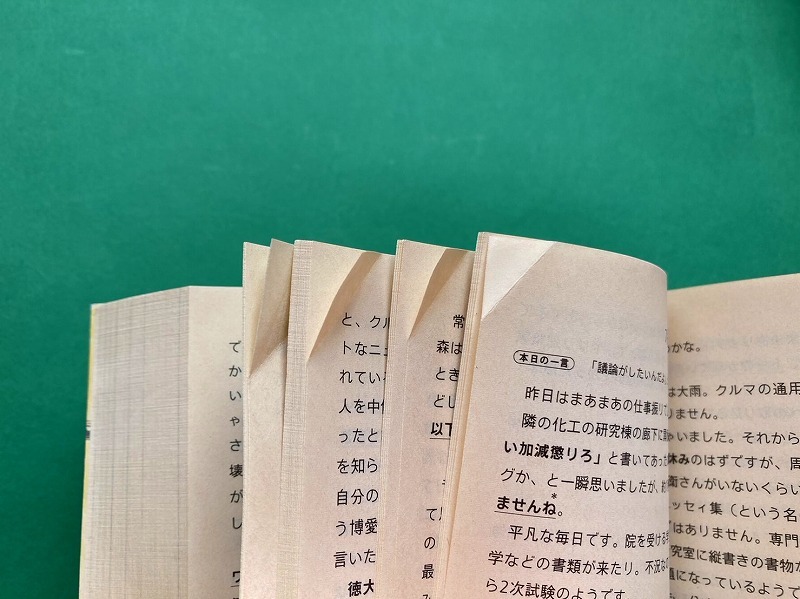 で
か
い
ゃ
さ
壊
が
し
と、クル
トなニュ
れてい
人を中
ったと
を知ら
自分の
う博愛
言いた
徳大
常
森は
とき
どし
以下
て
の
最
本日の一言
「議論がしたいんだよ
昨日はまあまあの仕事振り
隣の化工の研究棟の廊下に
い加減懲りろ」と書いてあっ
グか、と一瞬思いましたが、
ませんね。
*
平凡な毎日です。院を受ける
学などの書類が来たり。不況な
ら2次試験のようです。
かな。
は大雨。クルマの通用
りません。
いました。それから
休みのはずですが、周
衛さんがいないくらい
ッセィ集（という名
はありません。専門
究室に縦書きの書物が
になっているようで